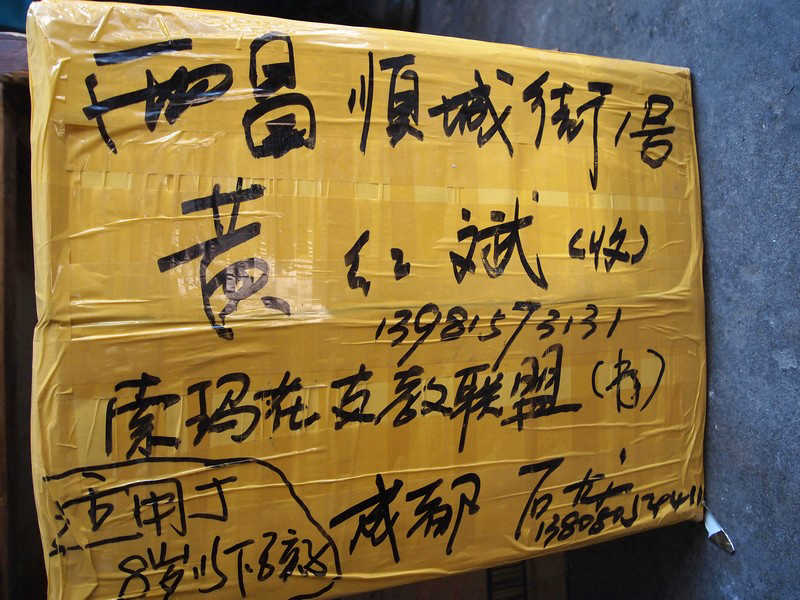 西昌 顺城街1号
黄红斌(收)
13981573131
索玛花支教联盟(书)
成都
适用于
8岁以下孩